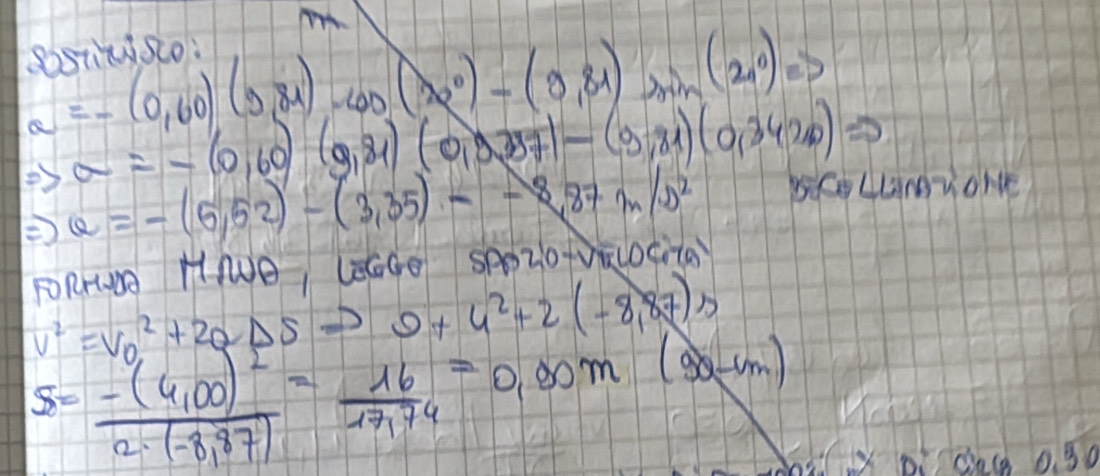 m
SOSTITUISCO:
a = - (0,60) (9,81) cos (20°) - (9,81) sin (20°) =>
=> a = - (0,60) (9,81) (0,9397) - (9,81) (0,3420) =>
=> a = - (5,52) - (3,35) = - 8,87 m/s² DECELLERAZIONE
FORMULA MRUA, LEGGE SPAZIO-VELOCITÀ
v² = v₀² + 2a ΔS => 0 + 4² + 2 (-8,87) s
S = -(4,00)² / 2·(-8,87) = 16 / 17,74 = 0,90 m (90 cm)
di circa 0.90